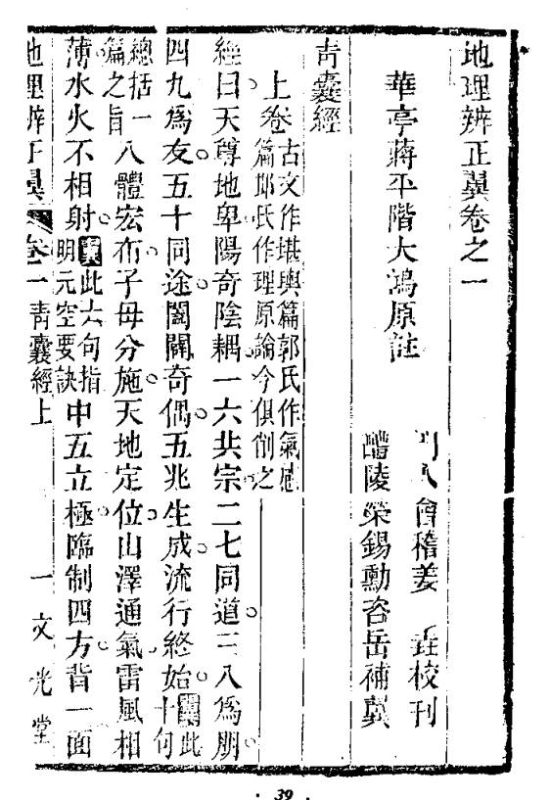 地理辨正翼卷之一
華亭蔣平階大鴻原註
門人會稽姜垚校刊
醴陵榮錫勳咨岳補翼
青囊經
上卷古文作堪輿篇郭氏作氣感
篇邱氏作理原論今俱削之
經曰天尊地卑陽奇陰耦一六共宗二七同道三八爲朋
四九爲友五十同途闔闢奇偶五兆生成流行終始翼此十句
總括一篇之旨八體宏布子母分施天地定位山澤通氣雷風相
薄水火不相射翼此六句指明元空要訣中五立極臨制四方背一面
地理辨正翼卷一青囊經上 一 文光堂
39